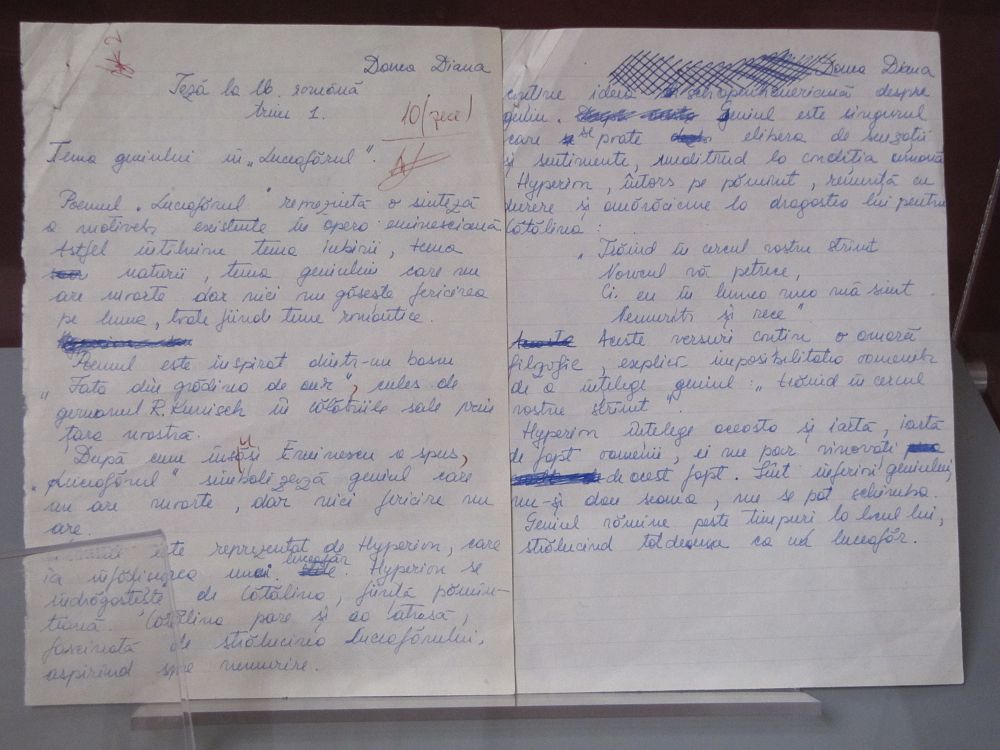 Donca Diana
Teză la lb. română
trim 1.
10 (zece)
Tema geniului în „Luceafărul".
Poemul „Luceafărul" reprezintă o sinteză
a motivelor existente în opera eminesciană
Astfel întîlnim tema iubirii, tema
naturii, tema geniului care nu
are moarte dar nici nu găsește fericirea
pe lume, toate fiind teme romantice.
Poemul este inspirat dintr-un basm
„Fata din grădina de aur", cules de
germanul R. Kunisch în călătoriile sale prin
țara noastră.
După cum însăși Eminescu a spus,
„Luceafărul" simbolizează geniul care
nu are moarte, dar nici fericire nu
are.
este reprezentat de Hyperion, care
ia înfățișarea unui luceafăr. Hyperion se
îndrăgostește de Cătălina, ființă pămîn-
teană. Cătălina pare și ea atrasă,
fascinată de strălucirea luceafărului,
aspirînd spre nemurire.
Donca Diana
conține ideea schopenhaueriană despre
geniu. geniul este singurul
care se poate elibera de senzații
și sentimente, meditînd la condiția umană
Hyperion, întors pe pămînt, renunță cu
durere și amărăciune la dragostea lui pentru
Cătălina:
„Trăind în cercul vostru strîmt
Norocul vă petrece,
Ci eu în lumea mea mă simt
Nemuritor și rece"
Aceste versuri conțin o amară
filozofie, explică imposibilitatea oamenilor
de a înțelege geniul: „trăind în cercul
vostru strîmt".
Hyperion înțelege aceasta și iartă, iartă
de fapt oamenii, ei nu par vinovați
de acest fapt. Sînt inferiori geniului,
nu-și dau seama, nu se pot schimba.
Geniul rămîne peste timpuri la locul lui,
strălucind totdeauna ca un luceafăr.